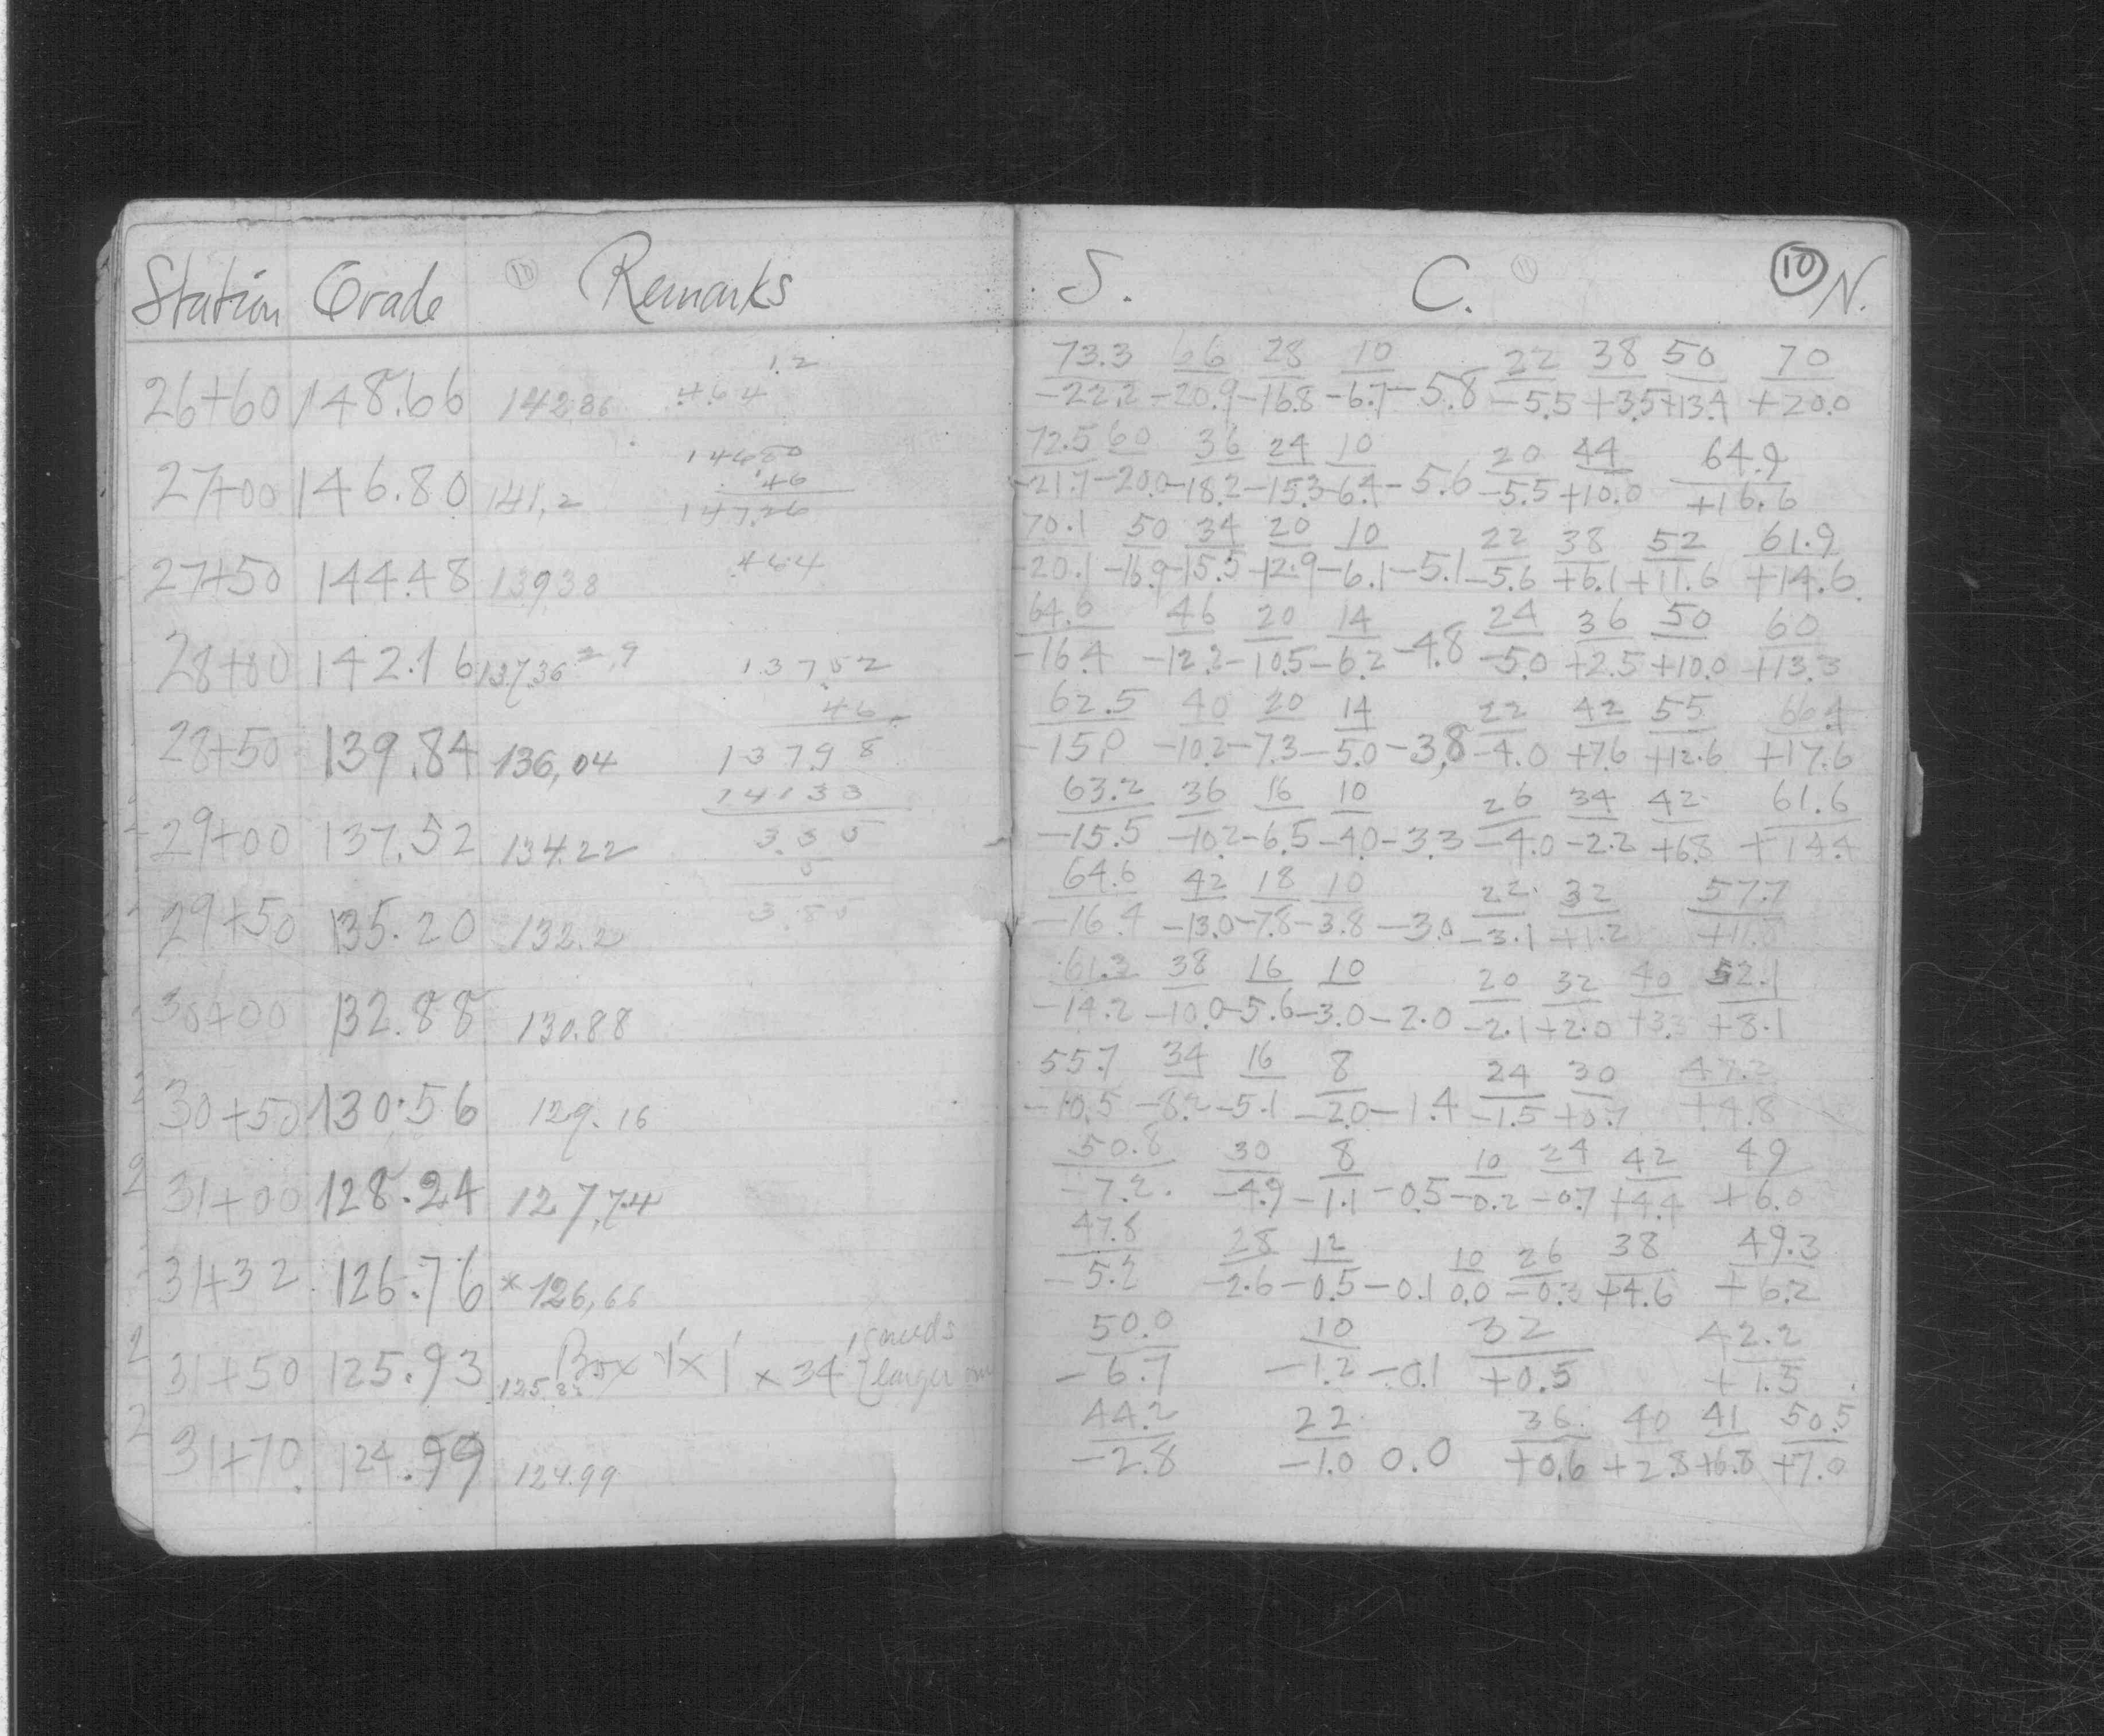 Station Grade 10 Remarks
26+60 148.66 142.86 1.2
4.64
27+00 146.80 141.2 146.80
.46
147.26
27+50 144.48 139.38 4.64
28+00 142.16 137.36 137.52
.46
28+50 139.84 136.04 137.98
141.33
29+00 137.52 134.22 3.35
5
29+50 135.20 132.20 3.85
30+00 132.88 130.88
30+50 130.56 129.16
31+00 128.24 127.74
31+32 126.76 * 126.66
31+50 125.93 125.83 Box 1' x 1' x 34' { needs larger
31+70 124.99 124.99
S. C. 11 10 N.
73.3 66 28 10 22 38 50 70
-22.2 -20.9 -16.8 -6.7 -5.8 -5.5 +3.5 +13.4 +20.0
72.5 60 36 24 10 20 44 64.9
-21.7 -20.0 -18.2 -15.3 -6.4 -5.6 -5.5 +10.0 +16.6
70.1 50 34 20 10 22 38 52 61.9
-20.1 -16.9 -15.5 -12.9 -6.1 -5.1 -5.6 +6.1 +11.6 +14.6
64.6 46 20 14 24 36 50 60
-16.4 -12.2 -10.5 -6.2 -4.8 -5.0 +2.5 +10.0 +13.3
62.5 40 20 14 22 42 55 66.4
-15.0 -10.2 -7.3 -5.0 -3.8 -4.0 +7.6 +12.6 +17.6
63.2 36 16 10 26 34 42 61.6
-15.5 -10.2 -6.5 -4.0 -3.3 -4.0 -2.2 +6.8 +14.4
64.6 42 18 10 22 32 57.7
-16.4 -13.0 -7.8 -3.8 -3.0 -3.1 +1.2 +11.8
61.3 38 16 10 20 32 40 52.1
-14.2 -10.0 -5.6 -3.0 -2.0 -2.1 +2.0 +3.3 +8.1
55.7 34 16 8 24 30 47.2
-10.5 -8.2 -5.1 -2.0 -1.4 -1.5 +0.7 +4.8
50.8 30 8 10 24 42 49
-7.2 -4.9 -1.1 -0.5 -0.2 -0.7 +4.4 +6.0
47.8 28 12 10 26 38 49.3
-5.2 -2.6 -0.5 -0.1 0.0 -0.3 +4.6 +6.2
50.0 10 32 42.2
-6.7 -1.2 -0.1 +0.5 +1.5
44.2 22 36 40 41 50.5
-2.8 -1.0 0.0 +0.6 +2.8 +6.8 +7.0